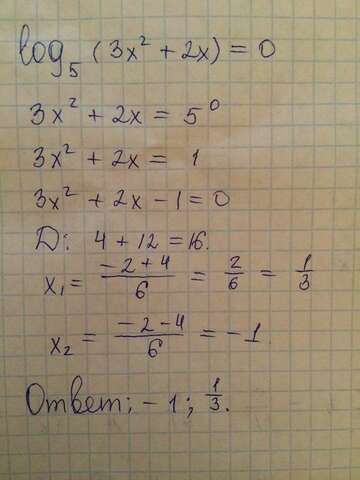 log₅ (3x² + 2x) = 0
3x² + 2x = 5⁰
3x² + 2x = 1
3x² + 2x - 1 = 0
D: 4 + 12 = 16.
x₁ = (-2+4)/6 = 2/6 = 1/3
x₂ = (-2-4)/6 = -1.
Ответ: -1; 1/3.